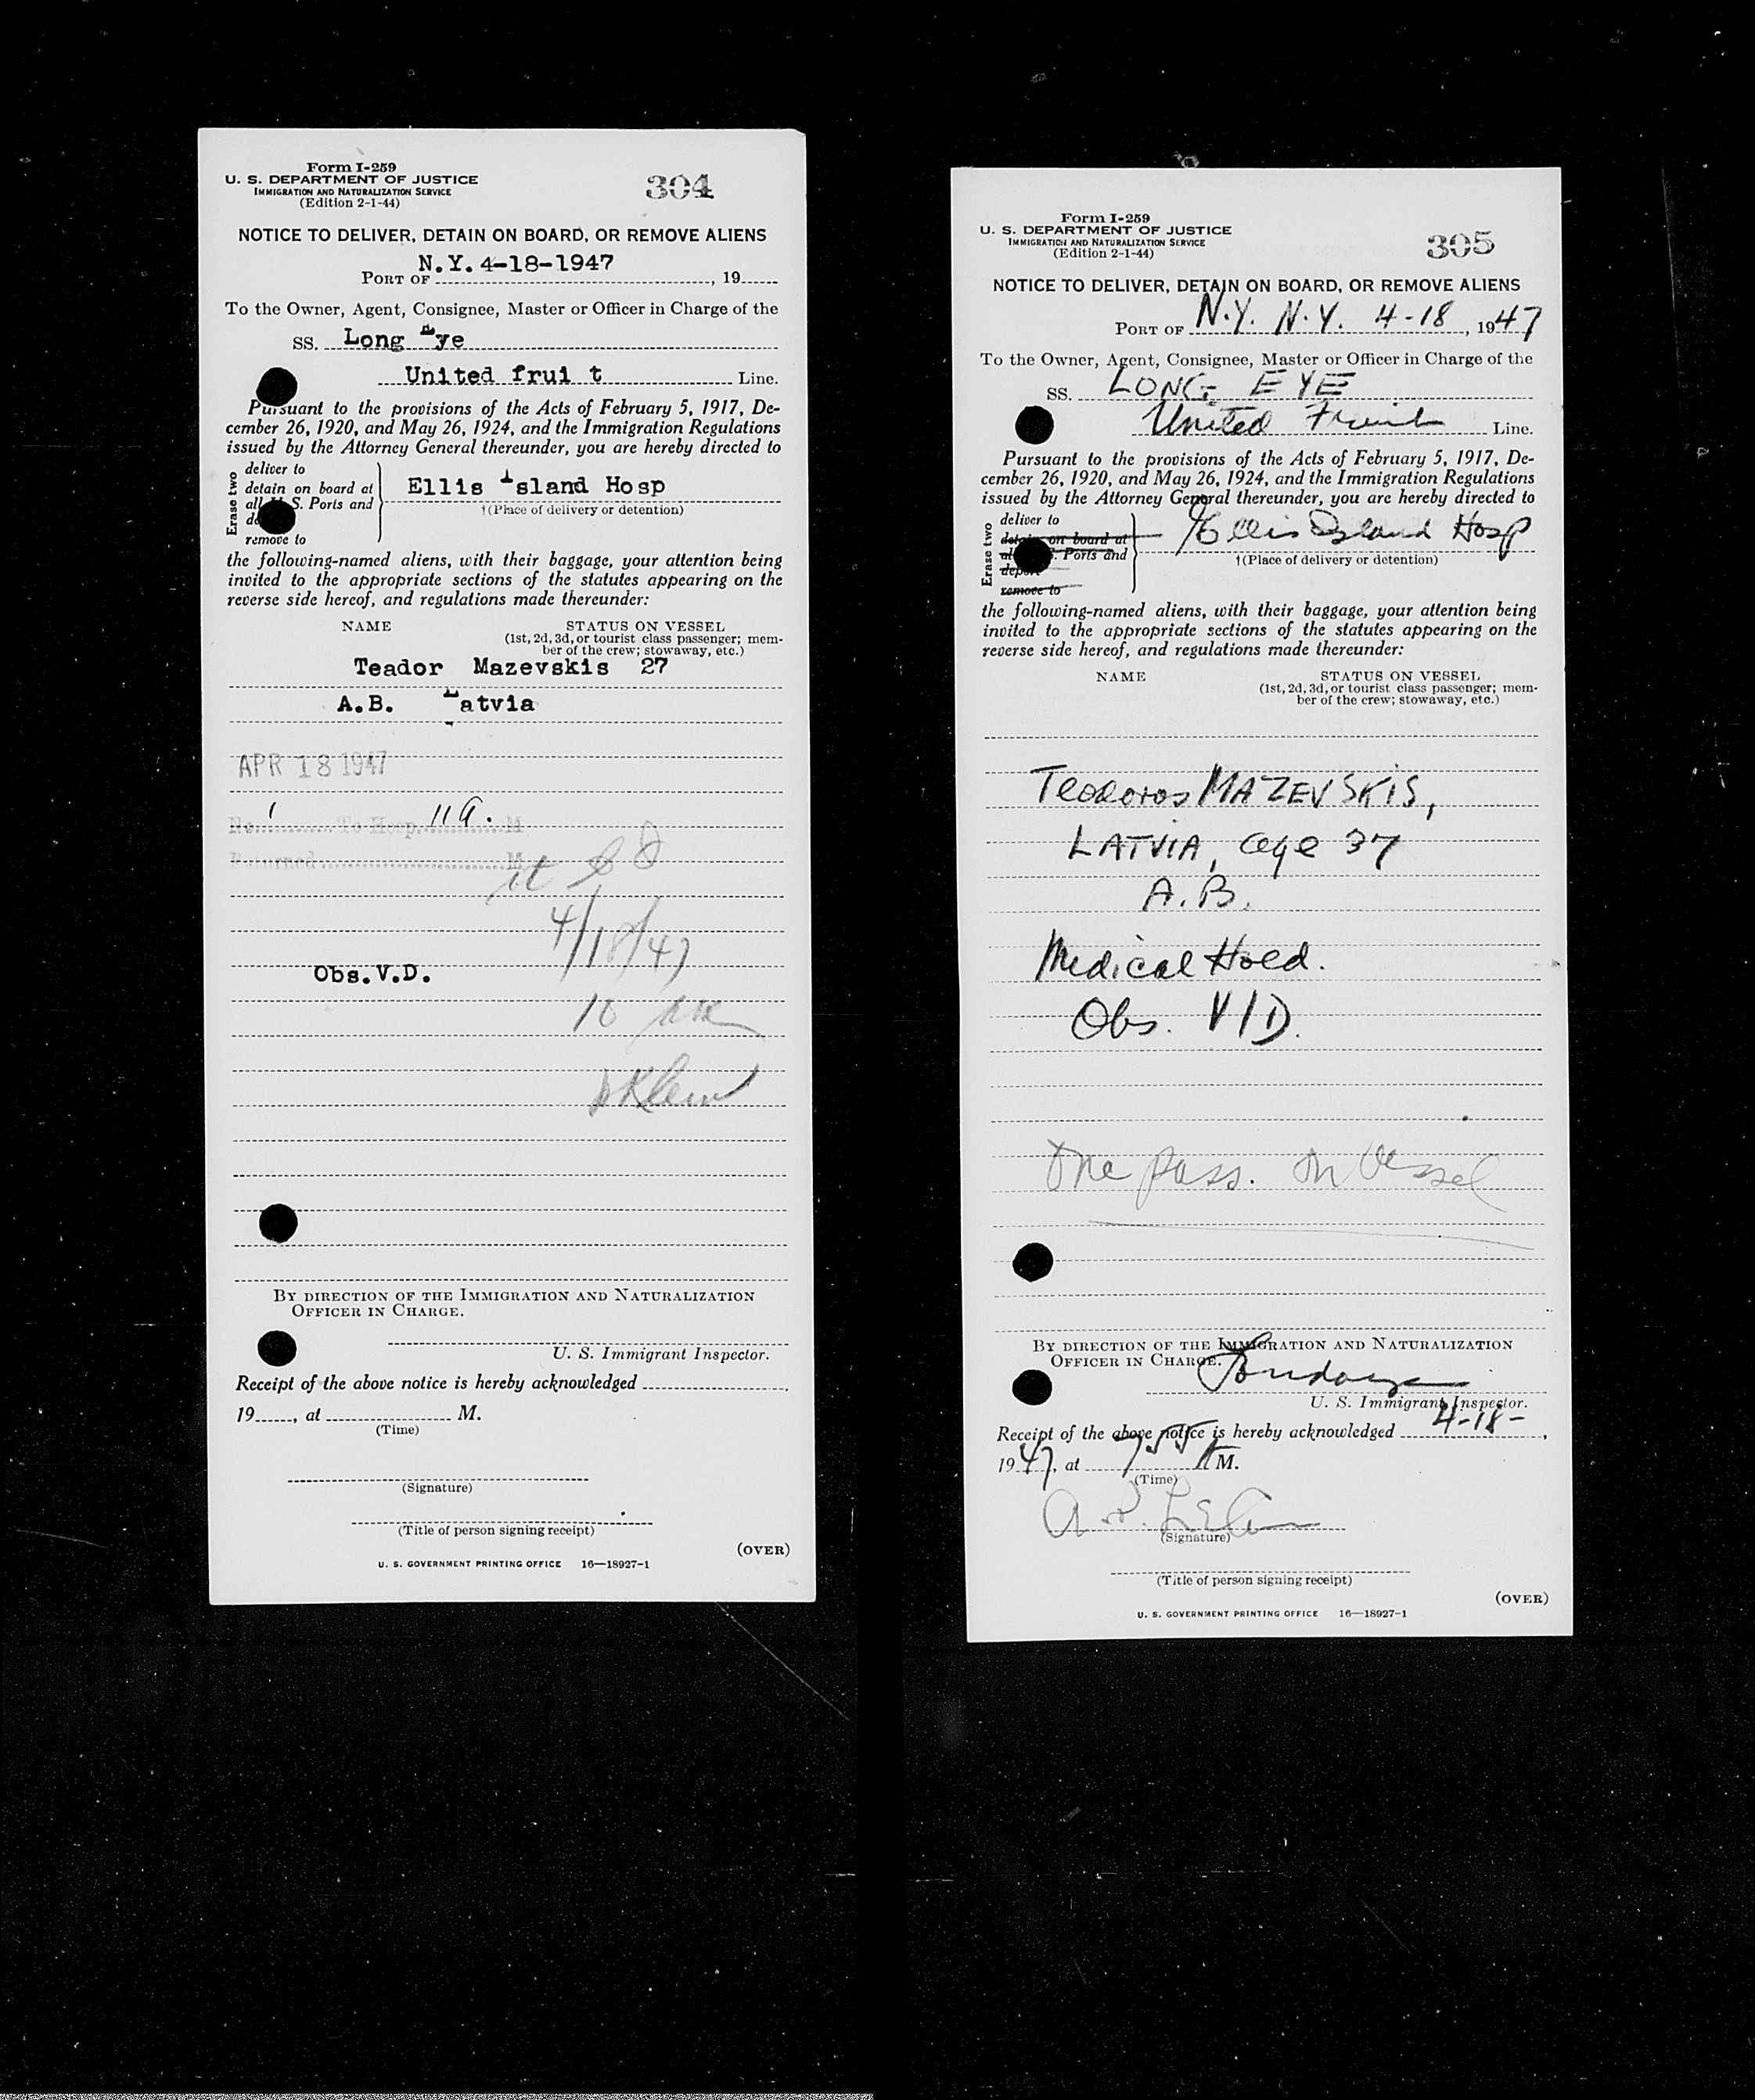 Form I-259
U. S. DEPARTMENT OF JUSTICE
IMMIGRATION AND NATURALIZATION SERVICE
(Edition 2-1-44)
304
NOTICE TO DELIVER, DETAIN ON BOARD, OR REMOVE ALIENS
N.Y. 4-18-1947
PORT OF , 19
To the Owner, Agent, Consignee, Master or Officer in Charge of the
SS. Long Eye
United frui t Line.
Pursuant to the provisions of the Acts of February 5, 1917, De-
cember 26, 1920, and May 26, 1924, and the Immigration Regulations
issued by the Attorney General thereunder, you are hereby directed to
Erase two
deliver to
detain on board at
all U. S. Ports and
remove to
Ellis Island Hosp
†(Place of delivery or detention)
the following-named aliens, with their baggage, your attention being
invited to the appropriate sections of the statutes appearing on the
reverse side hereof, and regulations made thereunder:
NAME STATUS ON VESSEL
(1st, 2d, 3d, or tourist class passenger; mem-
ber of the crew; stowaway, etc.)
Teador Mazevskis 27
A.B. Latvia
APR 18 1947
No. 1 To Hosp. 11 a. M
Returned M
4/18/47
Obs.V.D.
10 am
Klein
BY DIRECTION OF THE IMMIGRATION AND NATURALIZATION
OFFICER IN CHARGE.
U. S. Immigrant Inspector.
Receipt of the above notice is hereby acknowledged
19 , at M.
(Time)
(Signature)
(Title of person signing receipt)
(OVER)
U. S. GOVERNMENT PRINTING OFFICE 16—18927-1
Form I-259
U. S. DEPARTMENT OF JUSTICE
IMMIGRATION AND NATURALIZATION SERVICE
(Edition 2-1-44)
305
NOTICE TO DELIVER, DETAIN ON BOARD, OR REMOVE ALIENS
PORT OF N.Y. N.Y. 4-18, 1947
To the Owner, Agent, Consignee, Master or Officer in Charge of the
SS. LONG EYE
United Fruit Line.
Pursuant to the provisions of the Acts of February 5, 1917, De-
cember 26, 1920, and May 26, 1924, and the Immigration Regulations
issued by the Attorney General thereunder, you are hereby directed to
Erase two
deliver to
detain on board at
all U. S. Ports and
deport
remove to
Ellis Island Hosp
†(Place of delivery or detention)
the following-named aliens, with their baggage, your attention being
invited to the appropriate sections of the statutes appearing on the
reverse side hereof, and regulations made thereunder:
NAME STATUS ON VESSEL
(1st, 2d, 3d, or tourist class passenger; mem-
ber of the crew; stowaway, etc.)
Teodoros MAZEVSKIS,
LATVIA, age 37
A.B.
Medical Hold.
Obs. V/D.
One pass. on Vessel
BY DIRECTION OF THE IMMIGRATION AND NATURALIZATION
OFFICER IN CHARGE.
U. S. Immigrant Inspector.
Receipt of the above notice is hereby acknowledged 4-18-,
1947, at 755 A M.
(Time)
(Signature)
(Title of person signing receipt)
(OVER)
U. S. GOVERNMENT PRINTING OFFICE 16—18927-1